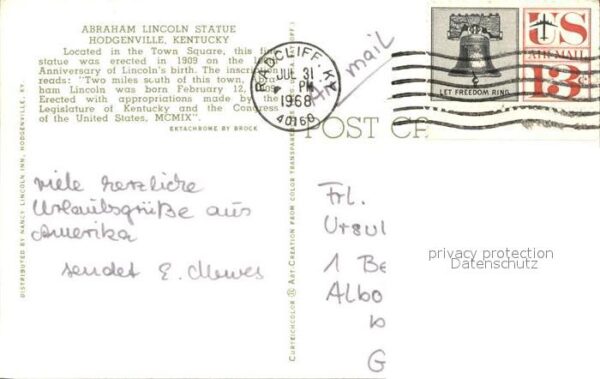 ABRAHAM LINCOLN STATUE
HODGENVILLE, KENTUCKY
Located in the Town Square, this fine
statue was erected in 1909 on the
Anniversary of Lincoln's birth. The inscription
reads: "Two miles south of this town, Abra-
ham Lincoln was born February 12,
Erected with appropriations made by the
Legislature of Kentucky and the Congress
of the United States, MCMIX".
EKTACHROME BY BROCK
DISTRIBUTED BY NANCY LINCOLN INN, HODGENVILLE, KY.
CURTEICHCOLOR ART CREATION FROM COLOR TRANSPARENCY
RADCLIFF, KY.
JUL 31
PM
1968
40160
Air mail
LET FREEDOM RING
US
AIR MAIL
13c
POST C
viele herzliche
Urlaubsgrüße aus
Amerika
sendet E. Mewes
Frl.
Ursul
1 Be
Albo
G
privacy protection
Datenschutz